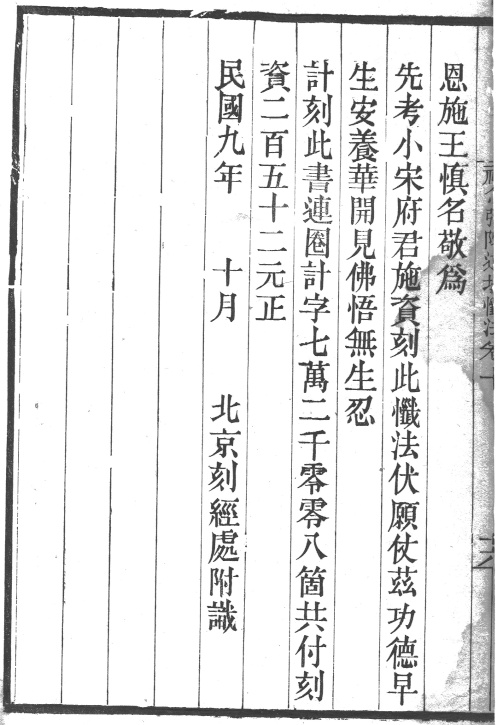 恩施王慎名敬爲
先考小宋府君施資刻此懺法伏願仗茲功德早
生安養華開見佛悟無生忍
計刻此書連圈計字七萬二千零零八箇共付刻
資二百五十二元正
民國九年 十月 北京刻經處附識